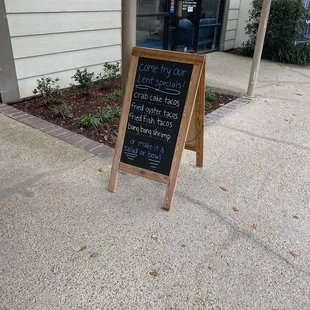 Come try our
Lent Specials!
Crab Cake tacos
fried oyster tacos
fried fish tacos
bang bang shrimp
or make it a
salad or bowl